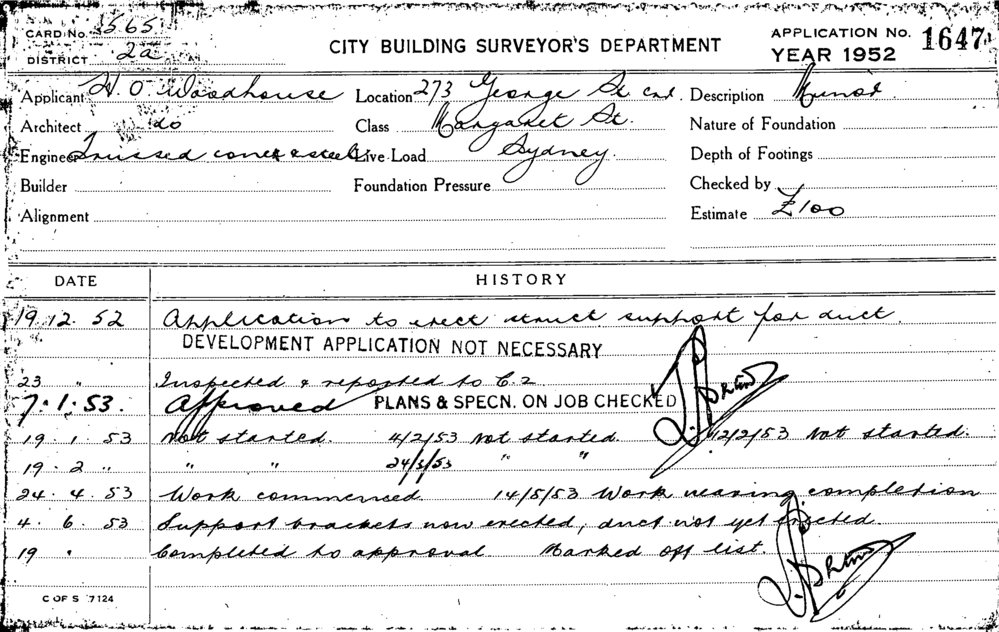 CARD No. 565
DISTRICT 2a
CITY BUILDING SURVEYOR'S DEPARTMENT
APPLICATION No. 1647
YEAR 1952
Applicant H. O. Woodhouse Location 273 George St cnr. Description Minor
Architect do Class Margaret St. Nature of Foundation
Engineer Trussed conc & steel Live Load Sydney. Depth of Footings
Builder Foundation Pressure Checked by
Alignment Estimate £100
DATE HISTORY
19.12.52 Application to erect struct. support for duct
DEVELOPMENT APPLICATION NOT NECESSARY
23 " Inspected & reported to C.2
7.1.53. Approved PLANS & SPECN. ON JOB CHECKED
19.1.53 Not started. 4/2/53 Not started. 12/2/53 Not started.
19.2 " " " 24/3/53 " "
24.4.53 Work commenced. 14/5/53 Work nearing completion
4.6.53 Support brackets now erected, duct not yet erected.
19 " Completed to approval. Marked off list.
C OF S 7124